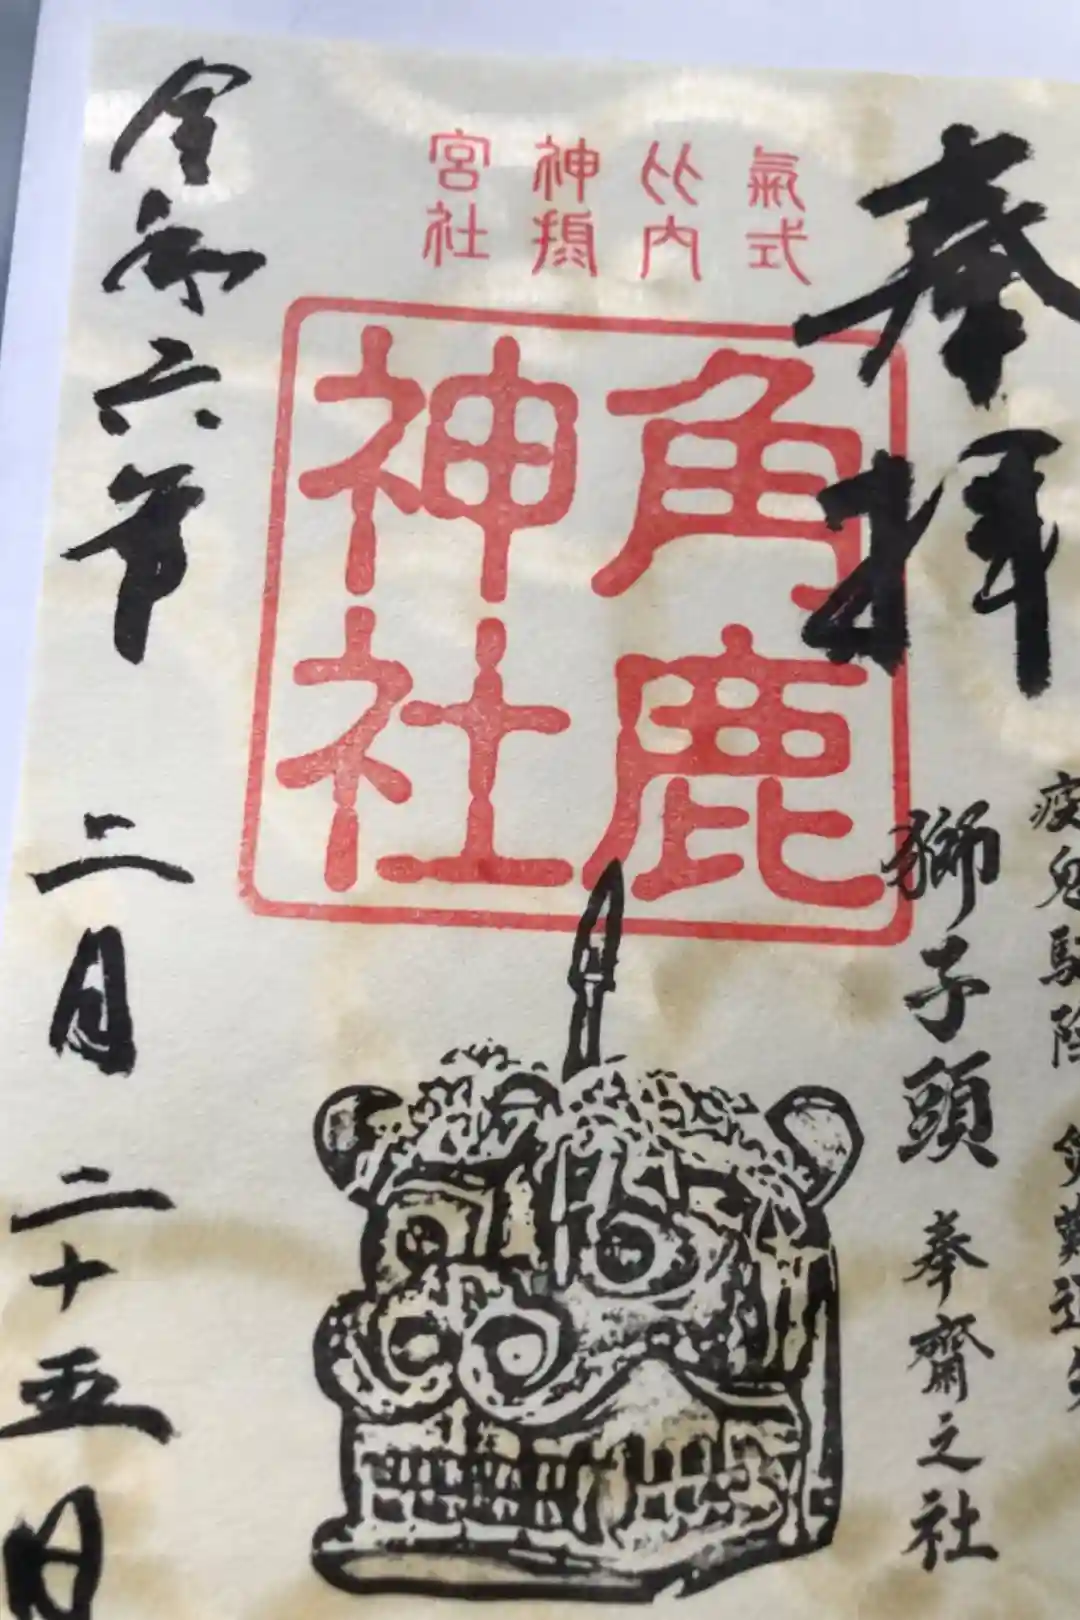 奉拝
疫鬼駆除
獅子頭 奉齋之社
氣比神宮
式内 社
角鹿
神社
令和六年 二月 二十五日